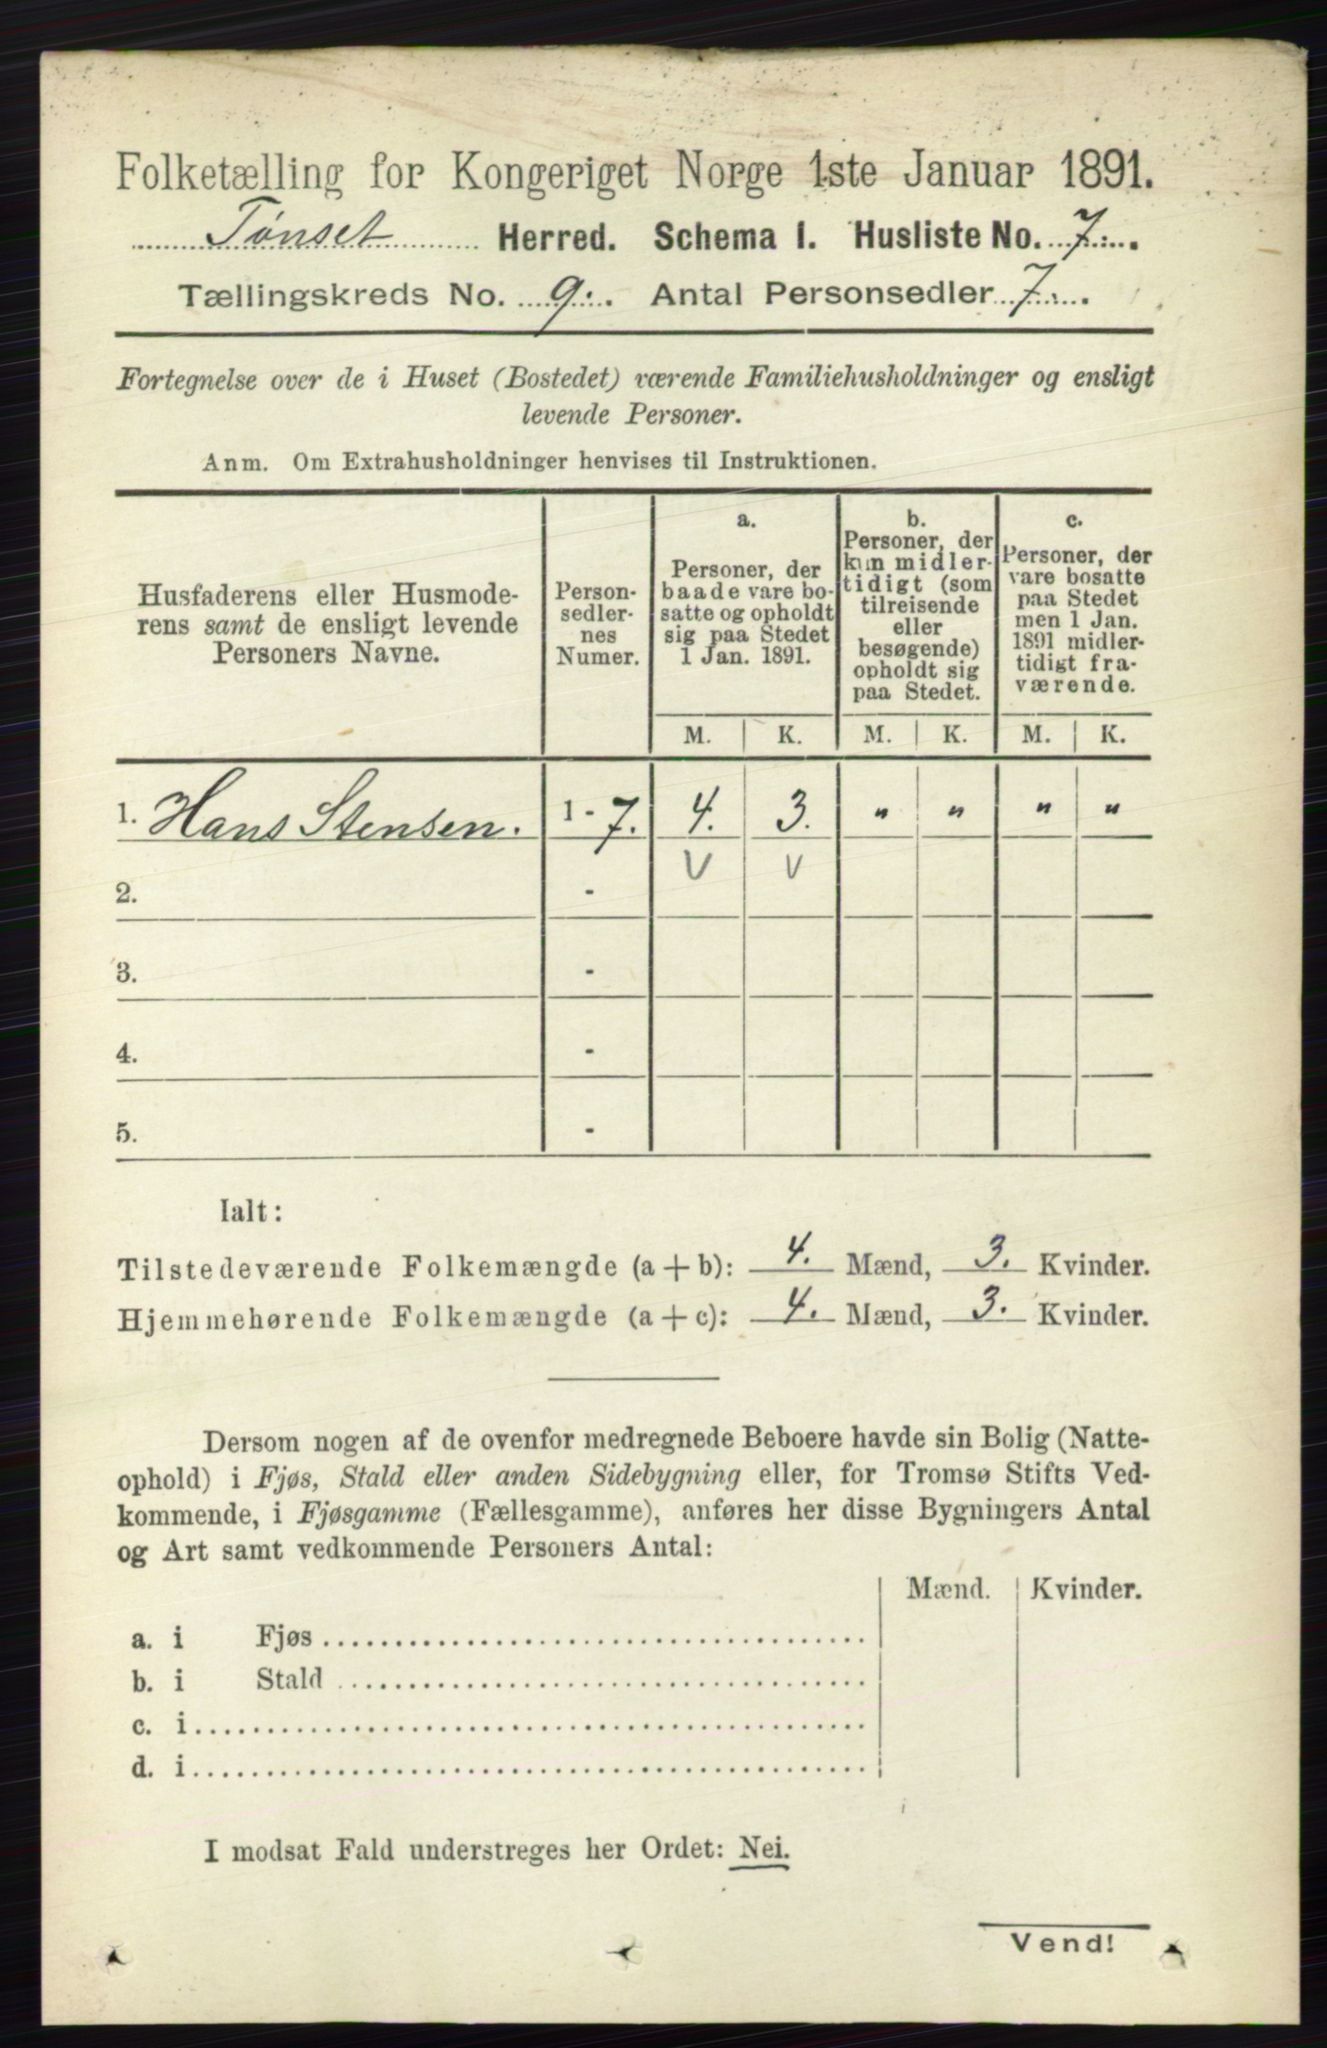 Folketælling for Kongeriget Norge 1ste Januar 1891.
Tønset Herred. Schema I. Husliste No. 7.
Tællingskreds No. 9. Antal Personsedler 7.
Fortegnelse over de i Huset (Bostedet) værende Familiehusholdninger og ensligt
levende Personer.
Anm. Om Extrahusholdninger henvises til Instruktionen.
Husfaderens eller Husmode-
rens samt de ensligt levende
Personers Navne.
Person-
sedler-
nes
Numer.
a.
Personer, der
baade vare bo-
satte og opholdt
sig paa Stedet
1 Jan. 1891.
b.
Personer, der
kun midler-
tidigt (som
tilreisende
eller
besøgende)
opholdt sig
paa Stedet.
c.
Personer, der
vare bosatte
paa Stedet
men 1 Jan.
1891 midler-
tidigt fra-
værende.
M. K. M. K. M. K.
1. Hans Stensen. 1 - 7. 4. 3. " " " "
2. - V V
3. -
4. -
5. -
Ialt:
Tilstedeværende Folkemængde (a + b): 4. Mænd, 3. Kvinder.
Hjemmehørende Folkemængde (a + c): 4. Mænd, 3. Kvinder.
Dersom nogen af de ovenfor medregnede Beboere havde sin Bolig (Natte-
ophold) i Fjøs, Stald eller anden Sidebygning eller, for Tromsø Stifts Ved-
kommende, i Fjøsgamme (Fællesgamme), anføres her disse Bygningers Antal
og Art samt vedkommende Personers Antal:
Mænd. Kvinder.
a. i Fjøs
b. i Stald
c. i
d. i
I modsat Fald understreges her Ordet: Nei.
Vend!